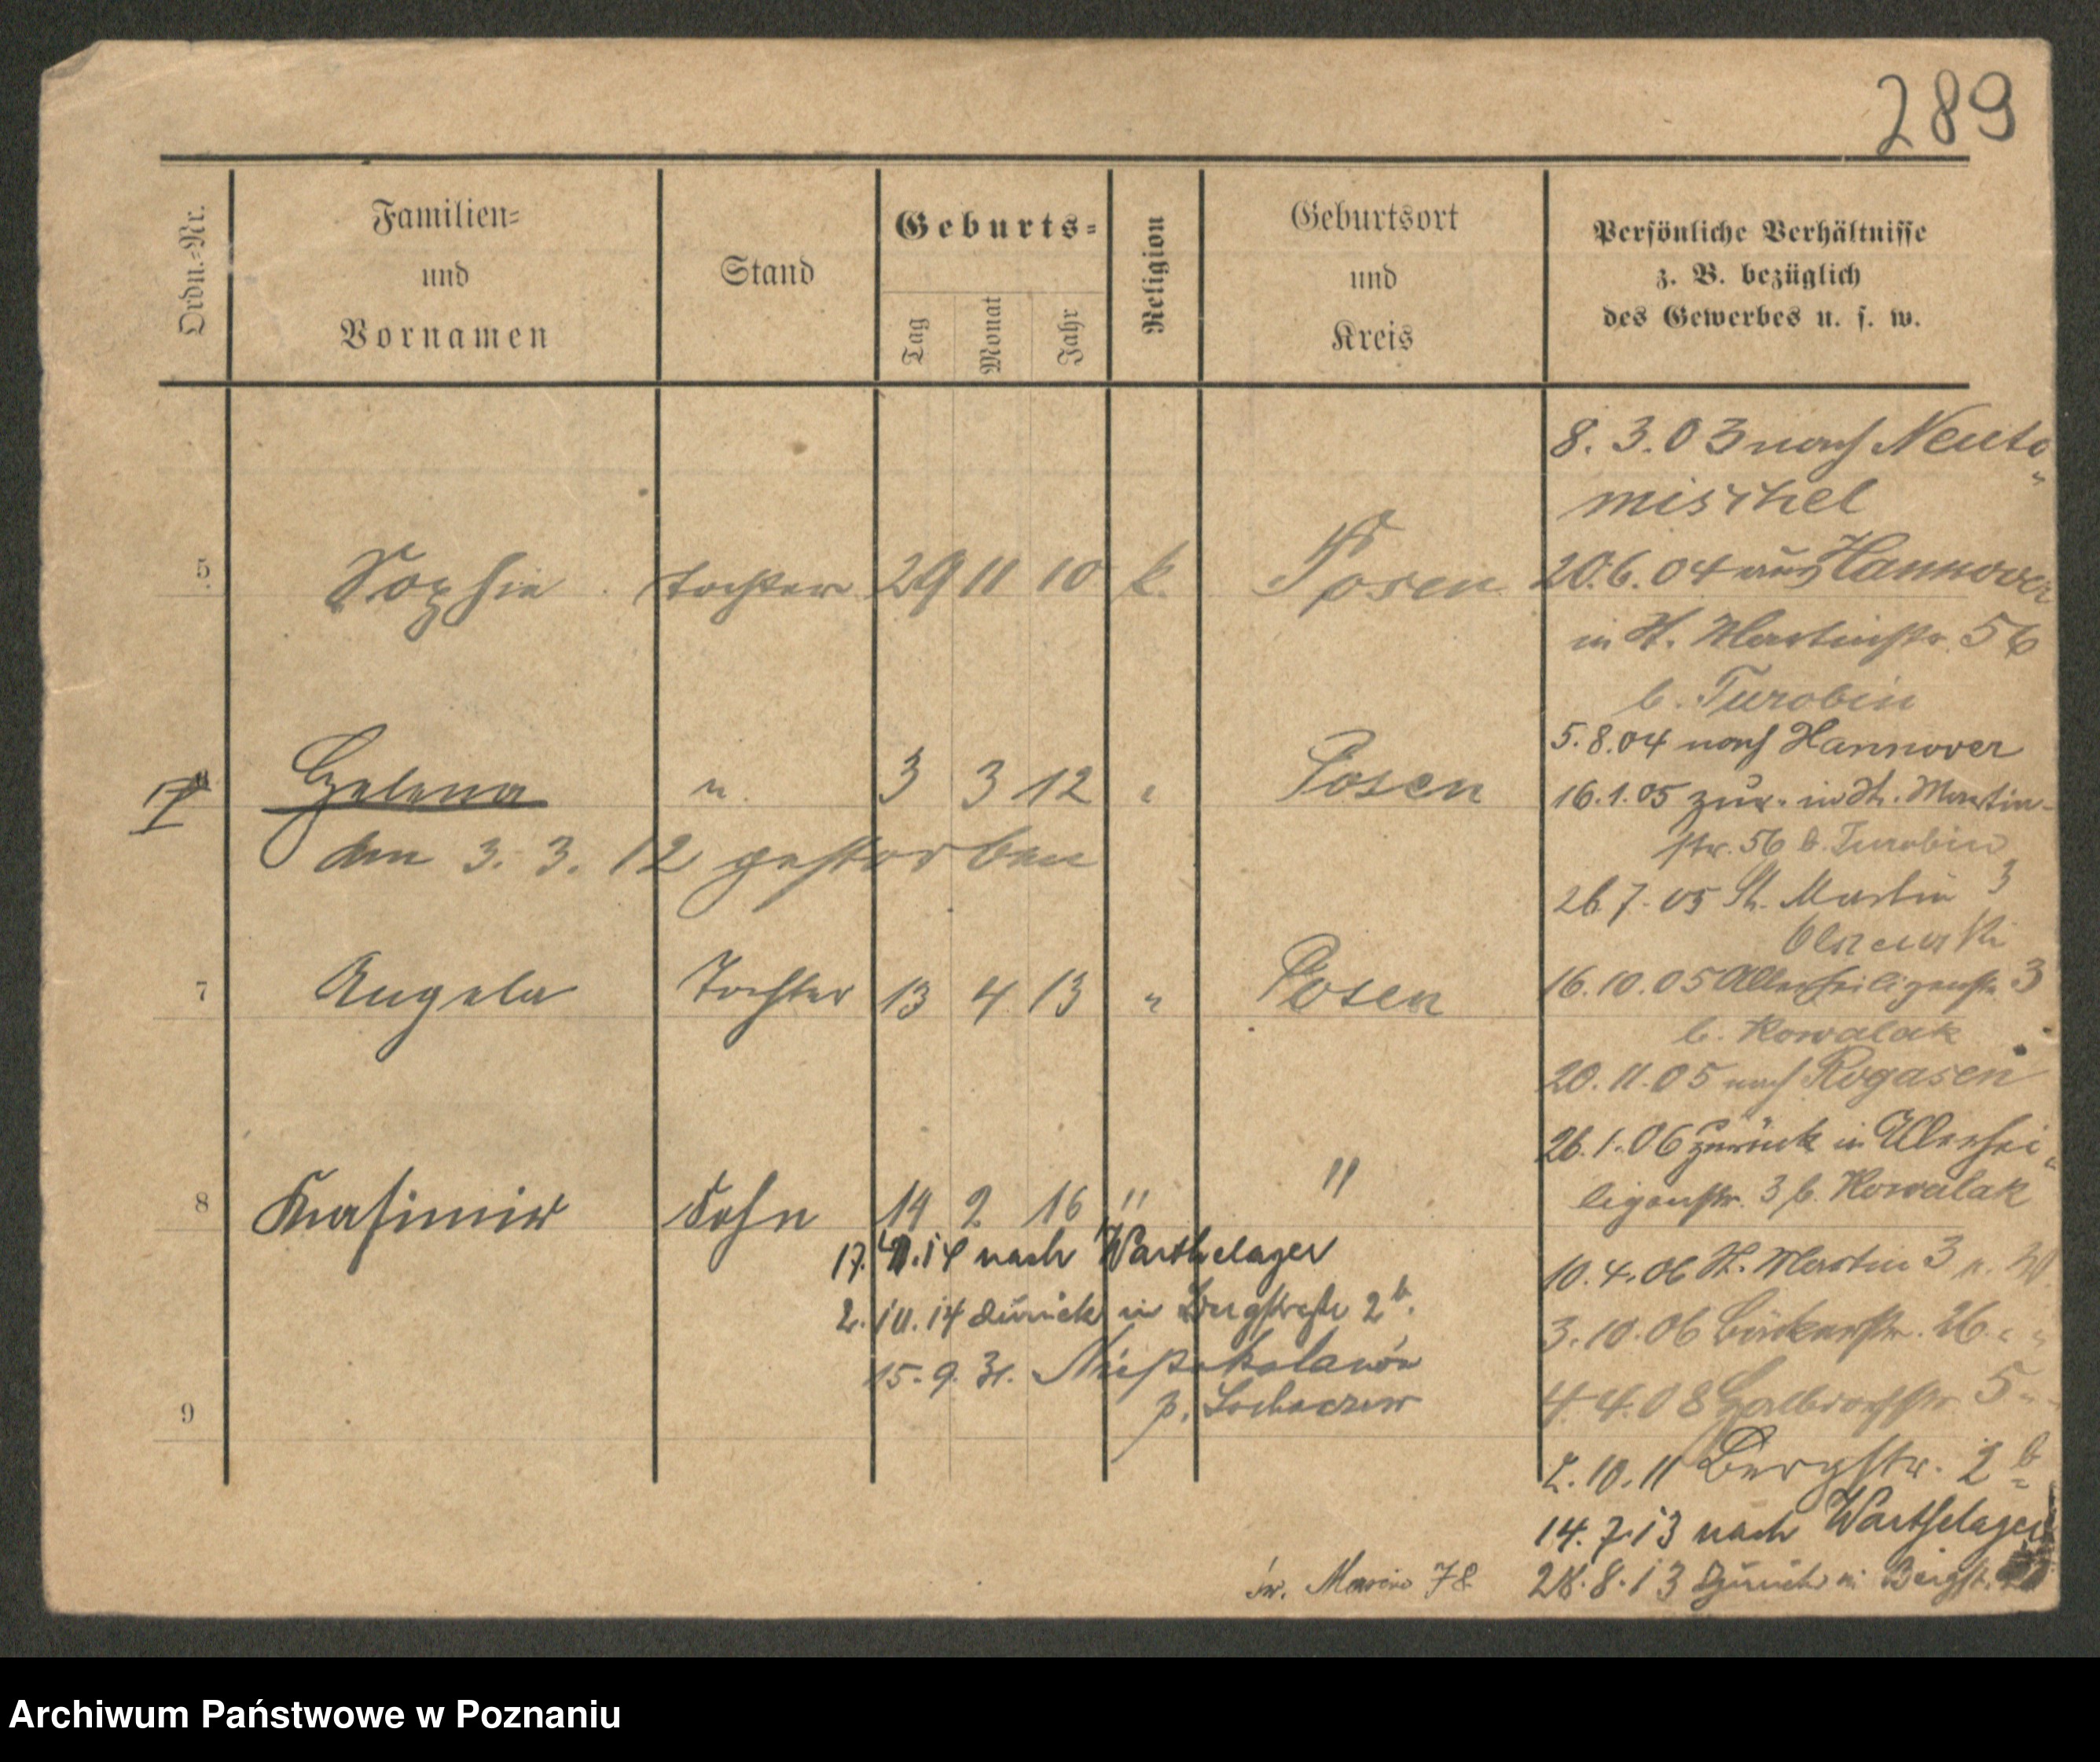 289
Ordn.-Nr.
Familien-
und
Vornamen
Stand
Geburts-
Tag
Monat
Jahr
Religion
Geburtsort
und
Kreis
Persönliche Verhältnisse
z. B. bezüglich
des Gewerbes u. s. w.
5 Sophie Tochter 29 11 10 k. Posen
Helena " 3 3 12 " Posen
den 3. 3. 12 gestorben
7 Angela Tochter 13 4 13 " Posen
8 Kasimir Sohn 14 2 16 " "
17. 14 nach Warthelager
2. 10. 14 zurück in Bergstraße 2b.
15. 9. 31. Niepokalanów
p. Sochaczew
9
8. 3. 03 nach Neuto-
mischel
20.6.04 aus Hannover
in St. Martinstr. 56
b. Turobin
5.8.04 nach Hannover
16.1.05 zur. in St. Martin-
str. 56 b. Turobin
26.7.05 St. Martin 3
Olszewski
16.10.05 Allerheiligenstr. 3
b. Kowalak
20.11.05 nach Rogasen
26.1.06 zurück in Allerhei-
ligenstr. 3 b. Kowalak
10.4.06 St. Martin 3
3.10.06 Bäckerstr. 26 " "
4.4.08 Halbdorfstr. 5 "
2.10.11 Bergstr. 2b
14.7.13 nach Warthelager
28.8.13 zurück in Bergstr.
św. Marcin 78
Archiwum Państwowe w Poznaniu